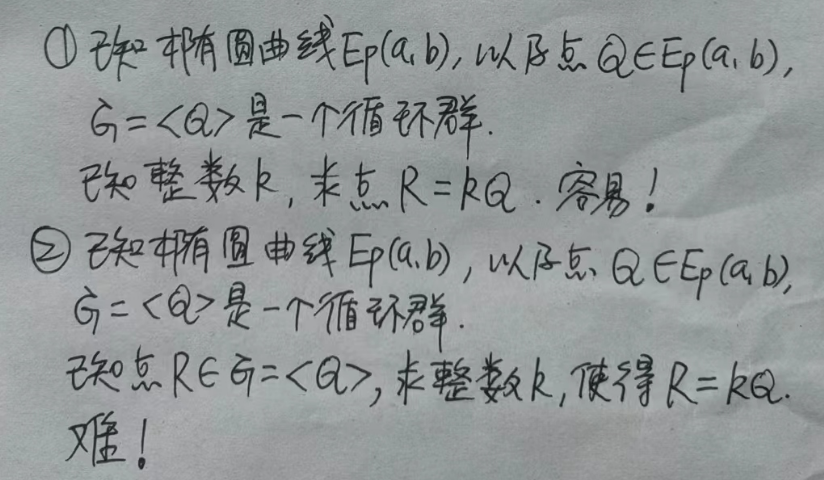 ① 已知椭圆曲线Ep(a,b), 以及点Q∈Ep(a,b),
G=<Q>是一个循环群.
已知整数k, 求点R=kQ. 容易!
② 已知椭圆曲线Ep(a,b), 以及点Q∈Ep(a,b),
G=<Q>是一个循环群.
已知点R∈G=<Q>, 求整数k, 使得R=kQ.
难!